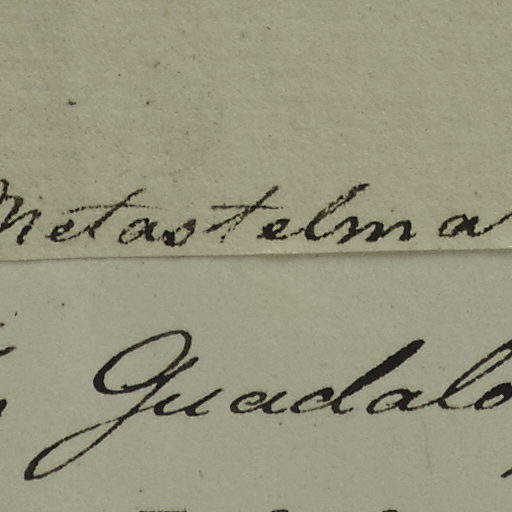 Metastelma
Guadalo